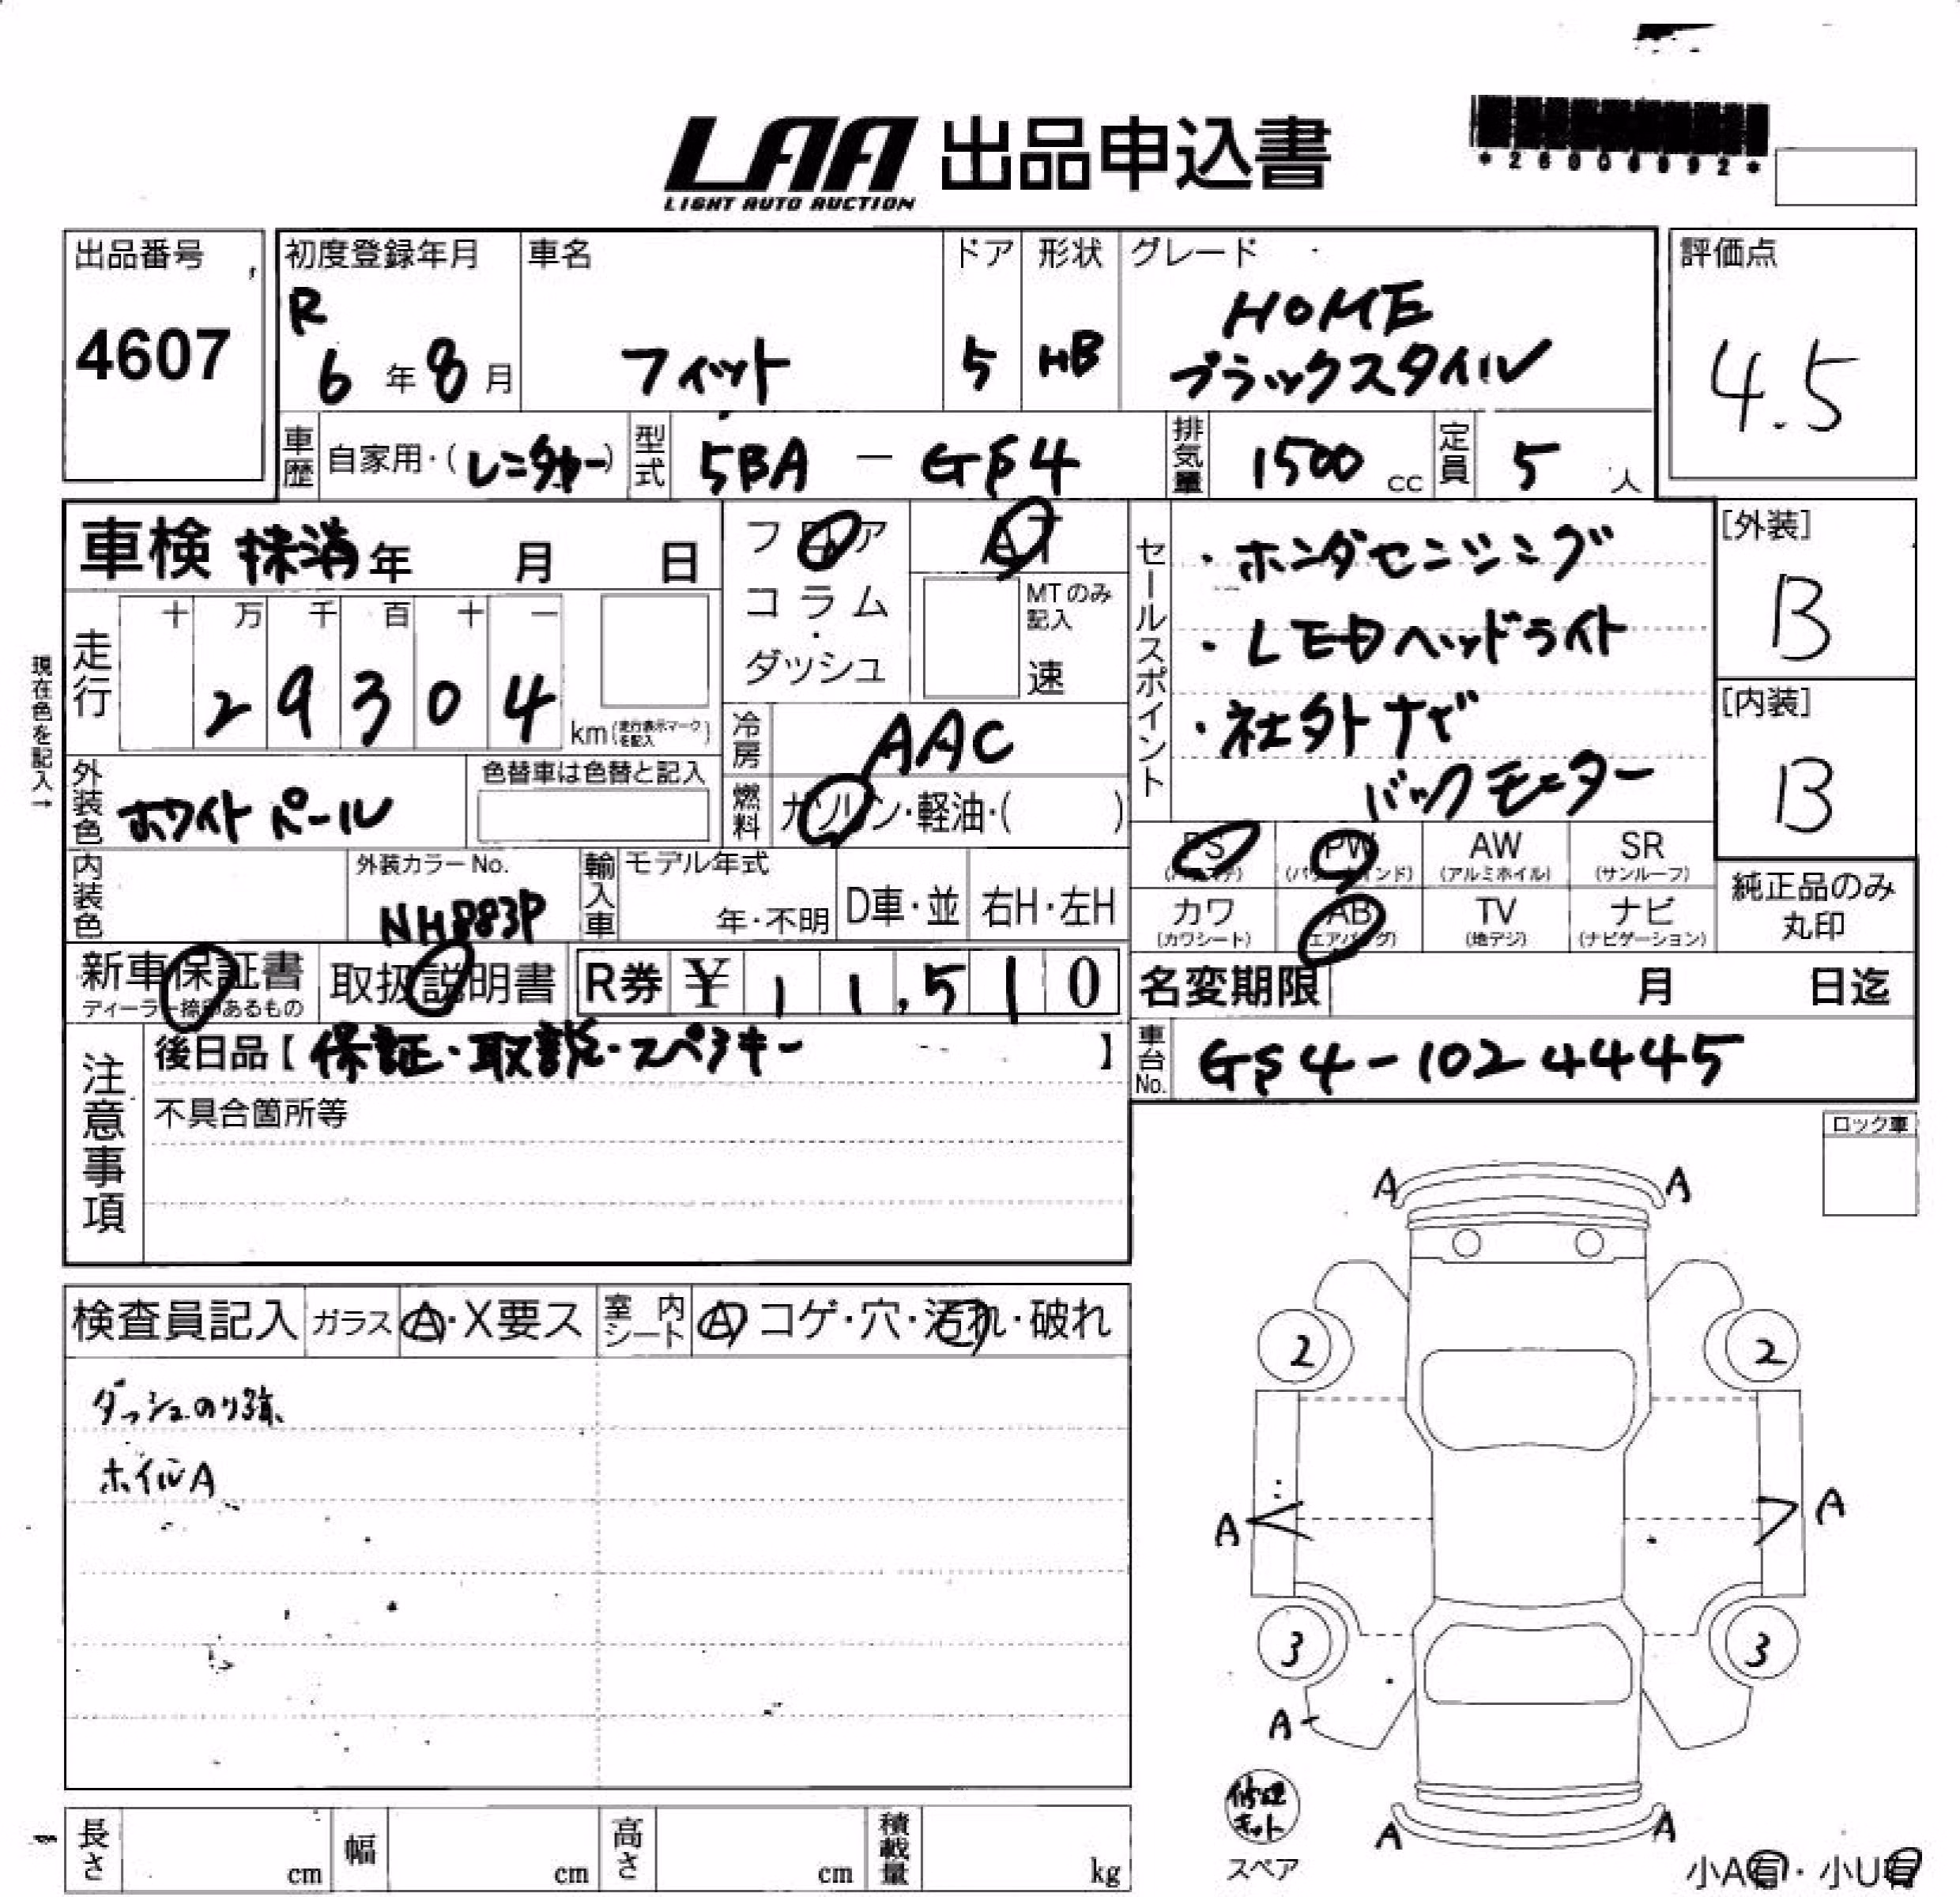 LAA 出品申込書
LIGHT AUTO AUCTION
出品番号
4607
初度登録年月
R
6年8月
車名
フィット
ドア
5
形状
HB
グレード
HOME
ブラックスタイル
評価点
4.5
車歴
自家用・(レンタカー)
型式
5BA - GS4
排気量
1500 cc
定員
5 人
車検 抹消 年 月 日
フロア
コラム
・
ダッシュ
AT
MTのみ
記入
速
セールスポイント
・ホンダセンシング
・LEDヘッドライト
・社外ナビ
バックモニター
[外装]
B
[内装]
B
現在色を記入→
走行
十 万 千 百 十 一
2 9 3 0 4
km(走行表示マークを記入)
冷房
AAC
燃料
ガソリン・軽油・( )
外装色
ホワイトパール
色替車は色替と記入
内装色
外装カラーNo.
NH883P
輸入車
モデル年式
年・不明
D車・並
右H・左H
PS
PW
AW
(アルミホイル)
SR
(サンルーフ)
カワ
(カワシート)
AB
(エアバッグ)
TV
(地デジ)
ナビ
(ナビゲーション)
純正品のみ
丸印
新車保証書
ディーラー捺印あるもの
取扱説明書
R券 ¥ 11,510
名変期限 月 日迄
注意事項
後日品【保証・取説・スペアキー】
不具合箇所等
車台No.
GS4-1024445
ロック車
検査員記入
ガラス
A・X要ス
室内シート
A コゲ・穴・汚れ・破れ
ダッシュのり跡
ホイルA
A A
2 2
A A
3 3
A
修理
キット
スペア
A A
小A有・小U有
長さ cm
幅 cm
高さ cm
積載量 kg